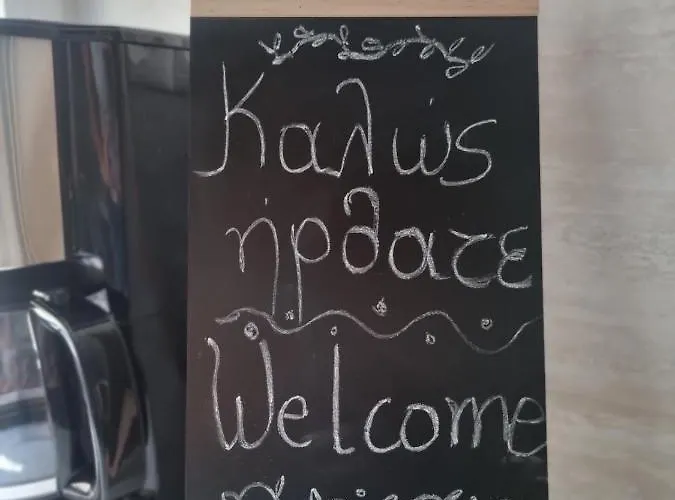 Καλώς
ήρθατε
Welcome